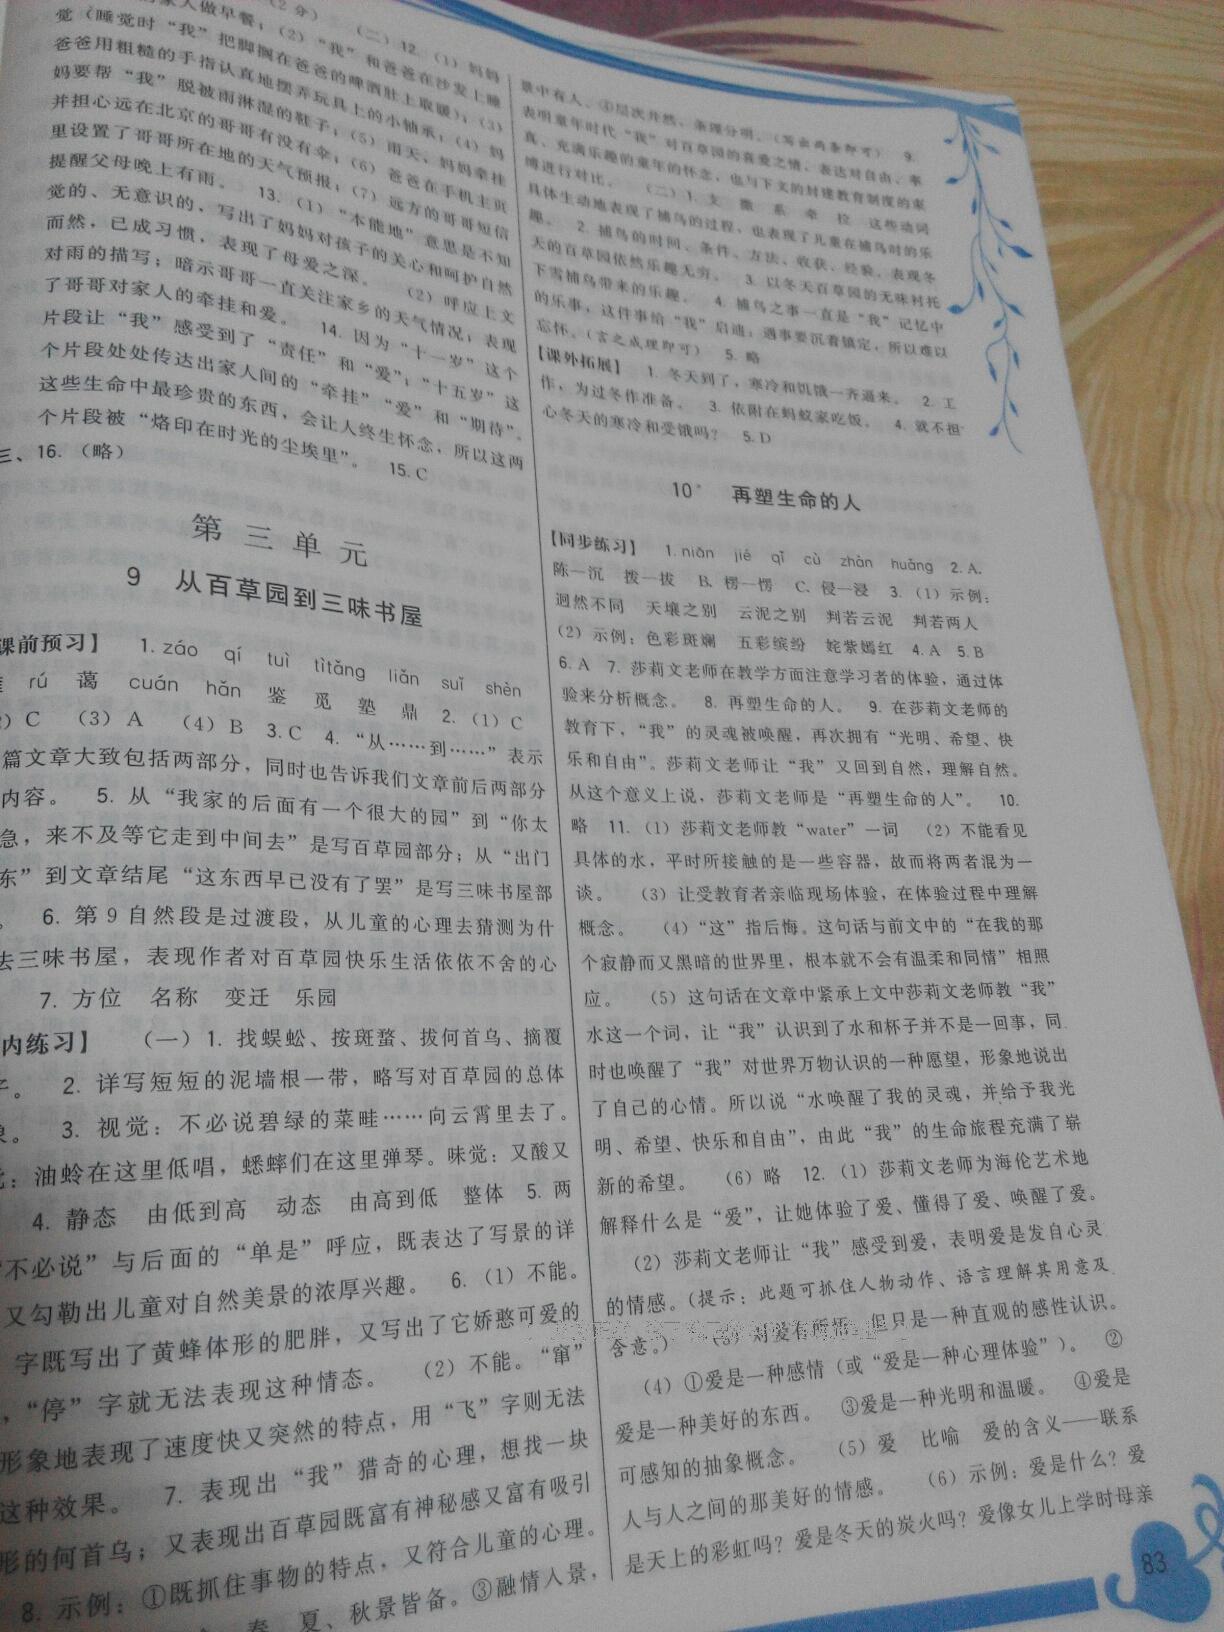 家人做早餐；(2)“我”和爸爸在沙发上睡
(2分) (二) 12. (1)妈妈
觉(睡觉时“我”把脚搁在爸爸的啤酒肚上取暖)；(3)
爸爸用粗糙的手指认真地摆弄玩具上的小轴承；(4)妈
妈要帮“我”脱被雨淋湿的鞋子；(5)雨天，妈妈牵挂
并担心远在北京的哥哥有没有伞；(6)爸爸在手机主页
里设置了哥哥所在地的天气预报；(7)远方的哥哥短信
提醒父母晚上有雨。 13. (1)“本能地”意思是不知
觉的、无意识的，写出了妈妈对孩子的关心和呵护自然
而然，已成习惯，表现了母爱之深。 (2)呼应上文
对雨的描写；暗示哥哥一直关注家乡的天气情况；表现
了哥哥对家人的牵挂和爱。 14. 因为“十一岁”这个
片段让“我”感受到了“责任”和“爱”；“十五岁”这
个片段处处传达出家人间的“牵挂”“爱”和“期待”。
这些生命中最珍贵的东西，会让人终生怀念，所以这两
个片段被“烙印在时光的尘埃里”。 15. C
三、16. (略)
第三单元
9 从百草园到三味书屋
课前预习】 1. záo qí tuì tìtǎng liǎn suī shèn
rú 蔼 cuán hǎn 鉴 觅 塾 鼎 2. (1) C
) C (3) A (4) B 3. C 4. “从……到……”表示
篇文章大致包括两部分，同时也告诉我们文章前后两部分
内容。 5. 从“我家的后面有一个很大的园”到“你太
急，来不及等它走到中间去”是写百草园部分；从“出门
东”到文章结尾“这东西早已没有了罢”是写三味书屋部
。 6. 第9自然段是过渡段，从儿童的心理去猜测为什
去三味书屋，表现作者对百草园快乐生活依依不舍的心
7. 方位 名称 变迁 乐园
内练习】 (一) 1. 找蜈蚣、按斑蝥、拔何首乌、摘覆
子。 2. 详写短短的泥墙根一带，略写对百草园的总体
象。 3. 视觉：不必说碧绿的菜畦……向云霄里去了。
觉：油蛉在这里低唱，蟋蟀们在这里弹琴。味觉：又酸又
4. 静态 由低到高 动态 由高到低 整体 5. 两
“不必说”与后面的“单是”呼应，既表达了写景的详
又勾勒出儿童对自然美景的浓厚兴趣。 6. (1)不能。
字既写出了黄蜂体形的肥胖，又写出了它娇憨可爱的
，“停”字就无法表现这种情态。 (2)不能。“窜”
形象地表现了速度快又突然的特点，用“飞”字则无法
这种效果。 7. 表现出“我”猎奇的心理，想找一块
形的何首乌；又表现出百草园既富有神秘感又富有吸引
8. 示例：①既抓住事物的特点，又符合儿童的心理。
春、夏、秋景皆备。③融情入景，
景中有人。④层次井然，条理分明。(写出两条即可) 9.
表明童年时代“我”对百草园的喜爱之情，表达对自由、率
真、充满乐趣的童年的怀念，也与下文的封建教育制度的束
缚进行对比。 (二) 1. 支 撒 系 牵 拉 这些动词
具体生动地表现了捕鸟的过程，也表现了儿童在捕鸟时的乐
趣。 2. 捕鸟的时间、条件、方法、收获、经验。表现冬
天的百草园依然乐趣无穷。 3. 以冬天百草园的无味衬托
下雪捕鸟带来的乐趣。 4. 捕鸟之事一直是“我”记忆中
的乐事，这件事给“我”启迪：遇事要沉着镇定，所以难以
忘怀。(言之成理即可) 5. 略
【课外拓展】 1. 冬天到了，寒冷和饥饿一齐逼来。 2. 工
作，为过冬作准备。 3. 依附在蚂蚁家吃饭。 4. 就不担
心冬天的寒冷和受饿吗？ 5. D
10* 再塑生命的人
【同步练习】 1. niān jié qǐ cù zhàn huǎng 2. A.
陈—沉 拨—拔 B. 楞—愣 C. 侵—浸 3. (1)示例：
迥然不同 天壤之别 云泥之别 判若云泥 判若两人
(2)示例：色彩斑斓 五彩缤纷 姹紫嫣红 4. A 5. B
6. A 7. 莎莉文老师在教学方面注意学习者的体验，通过体
验来分析概念。 8. 再塑生命的人。 9. 在莎莉文老师的
教育下，“我”的灵魂被唤醒，再次拥有“光明、希望、快
乐和自由”。莎莉文老师让“我”又回到自然，理解自然。
从这个意义上说，莎莉文老师是“再塑生命的人”。 10.
略 11. (1)莎莉文老师教“water”一词 (2)不能看见
具体的水，平时所接触的是一些容器，故而将两者混为一
谈。 (3)让受教育者亲临现场体验，在体验过程中理解
概念。 (4)“这”指后悔。这句话与前文中的“在我的那
个寂静而又黑暗的世界里，根本就不会有温柔和同情”相照
应。 (5)这句话在文章中紧承上文中莎莉文老师教“我”
水这一个词，让“我”认识到了水和杯子并不是一回事，同
时也唤醒了“我”对世界万物认识的一种愿望，形象地说出
了自己的心情。所以说“水唤醒了我的灵魂，并给予我光
明、希望、快乐和自由”，由此“我”的生命旅程充满了崭
新的希望。 (6)略 12. (1)莎莉文老师为海伦艺术地
解释什么是“爱”，让她体验了爱、懂得了爱、唤醒了爱。
(2)莎莉文老师让“我”感受到爱，表明爱是发自心灵
的情感。(提示：此题可抓住人物动作、语言理解其用意及
含意。) (3)对爱有所悟，但只是一种直观的感性认识。
(4)①爱是一种感情(或“爱是一种心理体验”)。 ②
爱是一种美好的东西。 ③爱是一种光明和温暖。 ④爱是
可感知的抽象概念。 (5)爱 比喻 爱的含义——联系
人与人之间的那美好的情感。 (6)示例：爱是什么？爱
是天上的彩虹吗？爱是冬天的炭火吗？爱像女儿上学时母亲
83